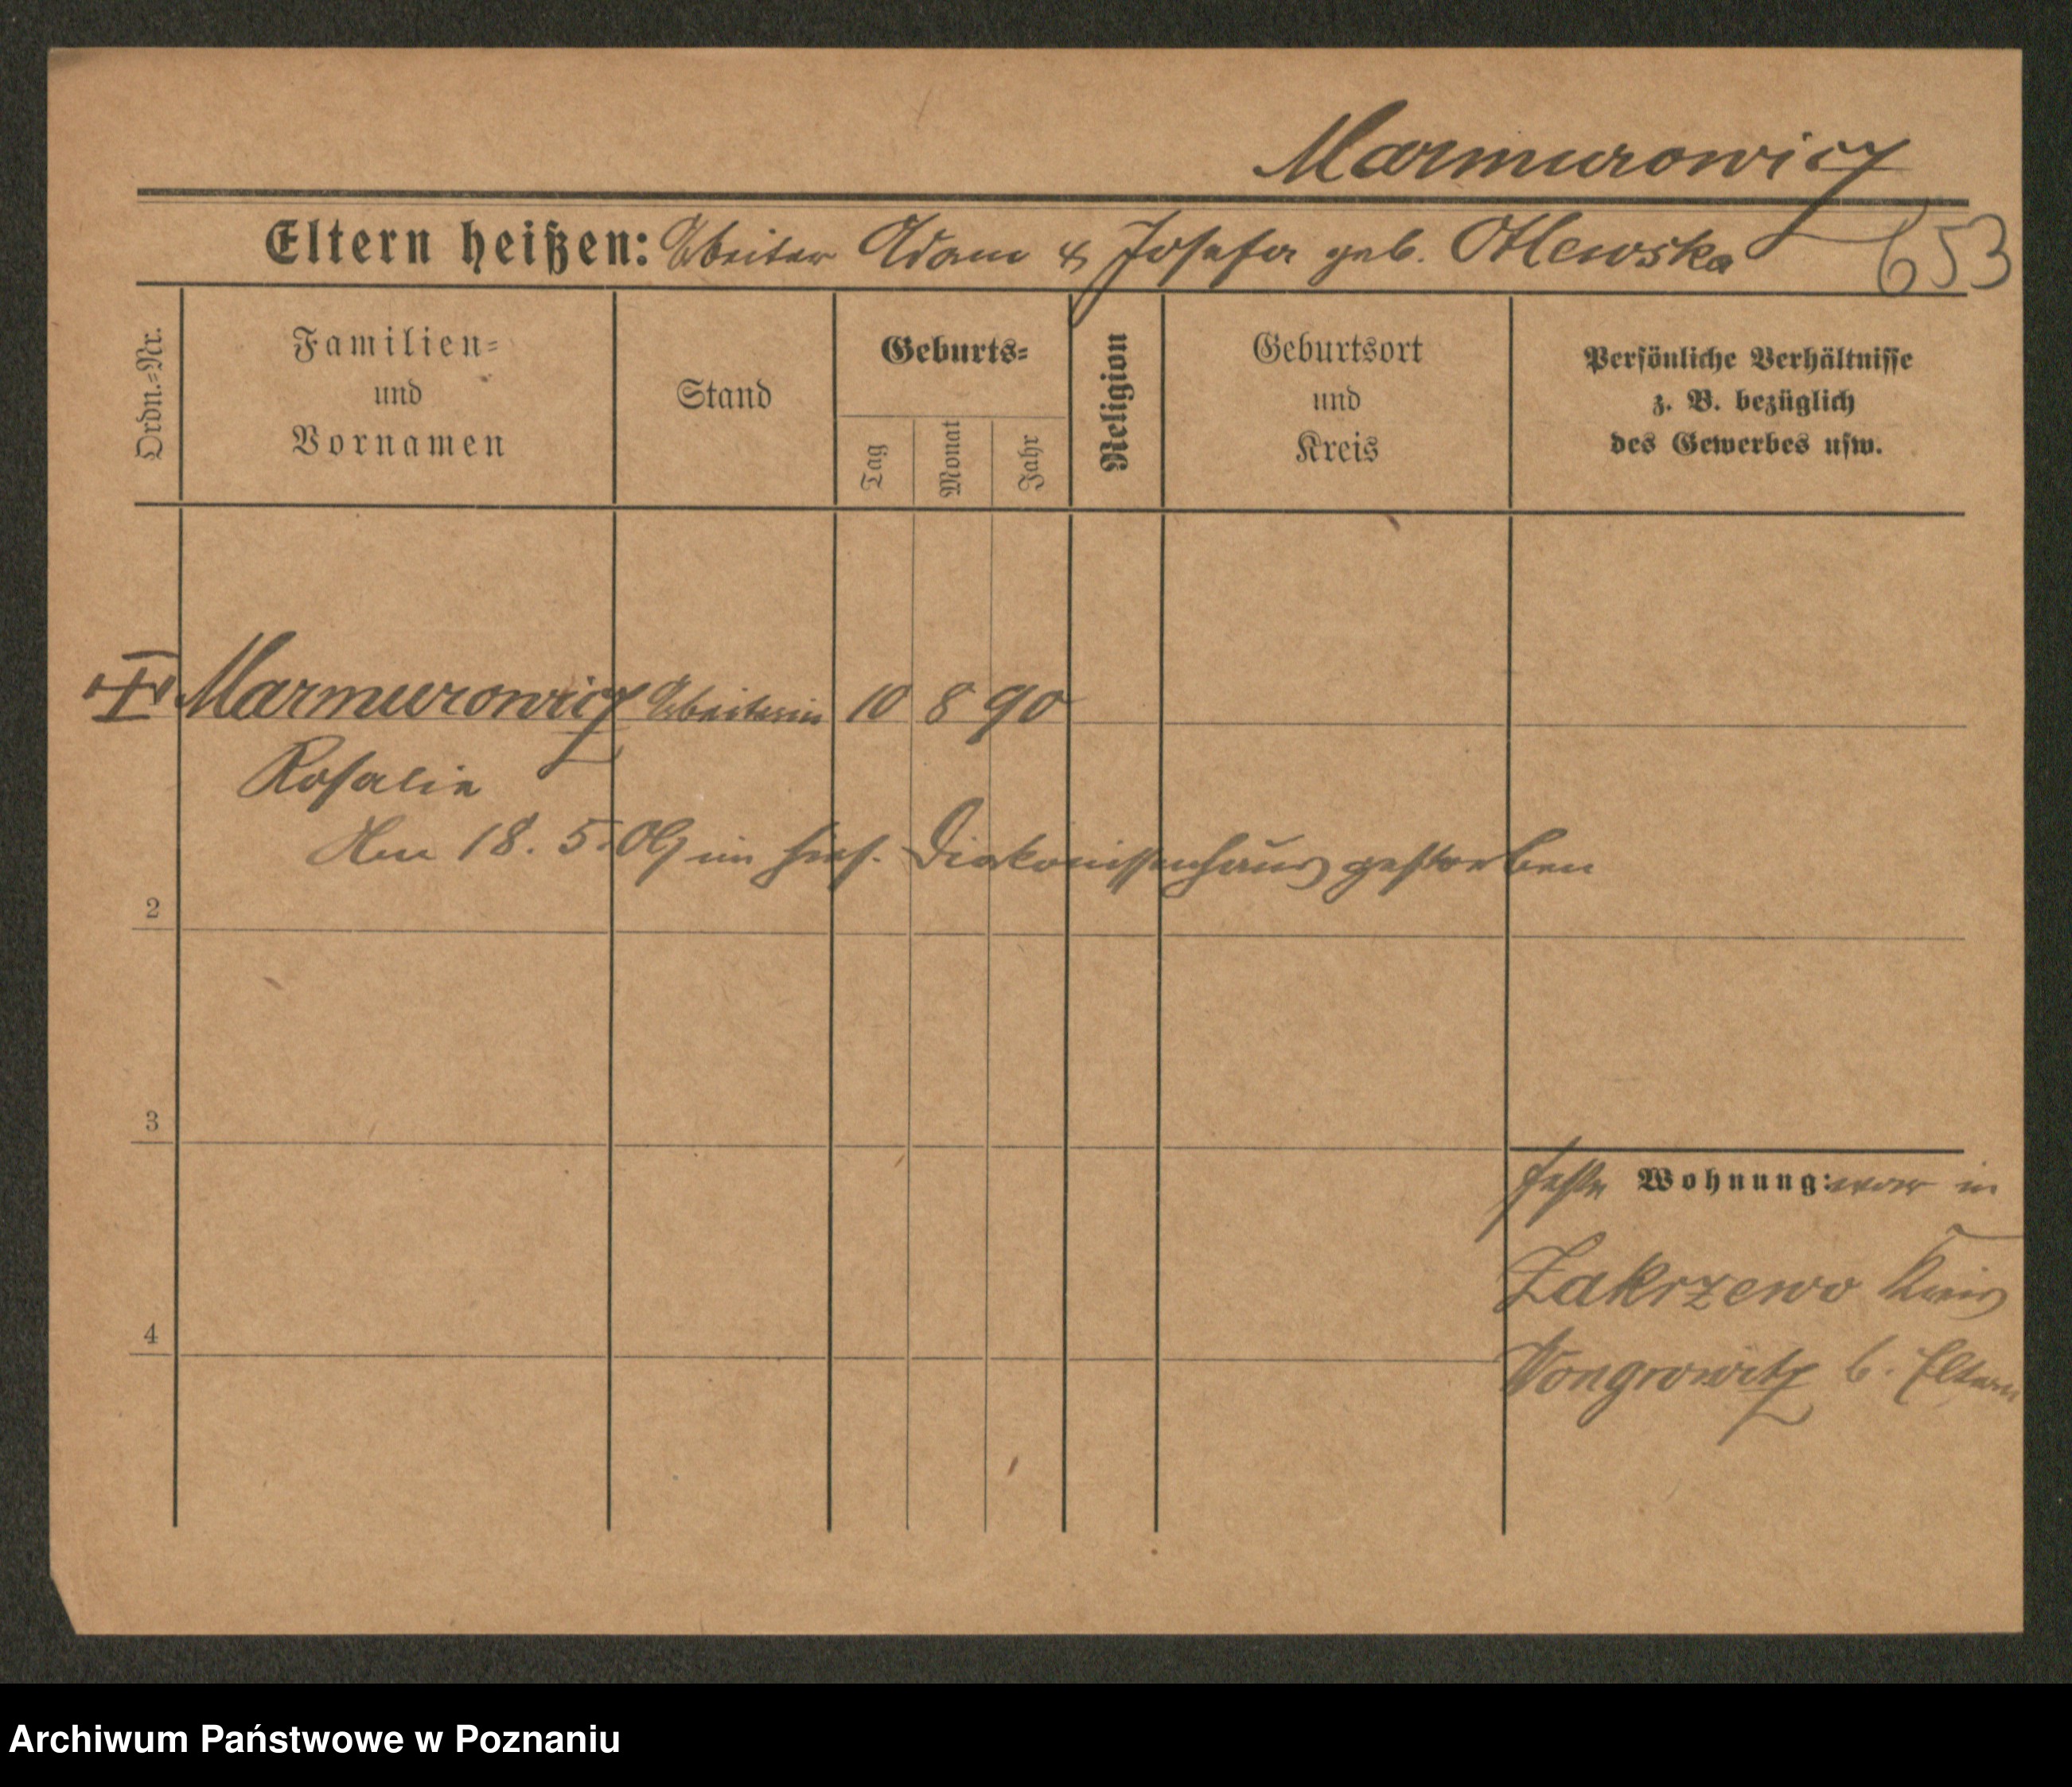 Marmurowicz
653
Eltern heißen: Arbeiter Adam & Josefa geb. Otlewska
Ordn.=Nr.
Familien=
und
Vornamen
Stand
Geburts=
Tag
Monat
Jahr
Religion
Geburtsort
und
Kreis
Persönliche Verhältnisse
z. B. bezüglich
des Gewerbes usw.
Marmurowicz Arbeiterin 10 8 90
Rosalie
Am 18. 5. 09 im hies. Diakonissenhaus gestorben
2
3
feste Wohnung: war in
Zakrzewo Kreis
4
Wongrowitz b. Eltern
Archiwum Państwowe w Poznaniu